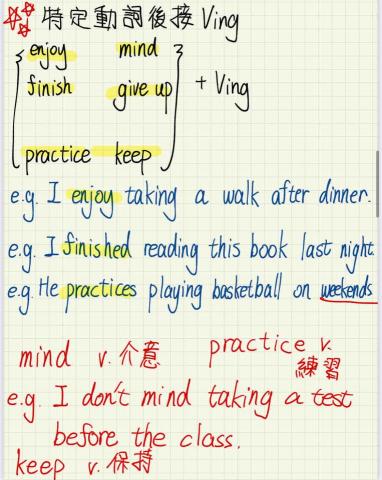 特定動詞後接 Ving
enjoy mind
finish give up + Ving
practice keep
e.g. I enjoy taking a walk after dinner.
e.g. I finished reading this book last night.
e.g. He practices playing basketball on weekends
mind v. 介意 practice v.
練習
e.g. I don't mind taking a test
before the class.
keep v. 保持